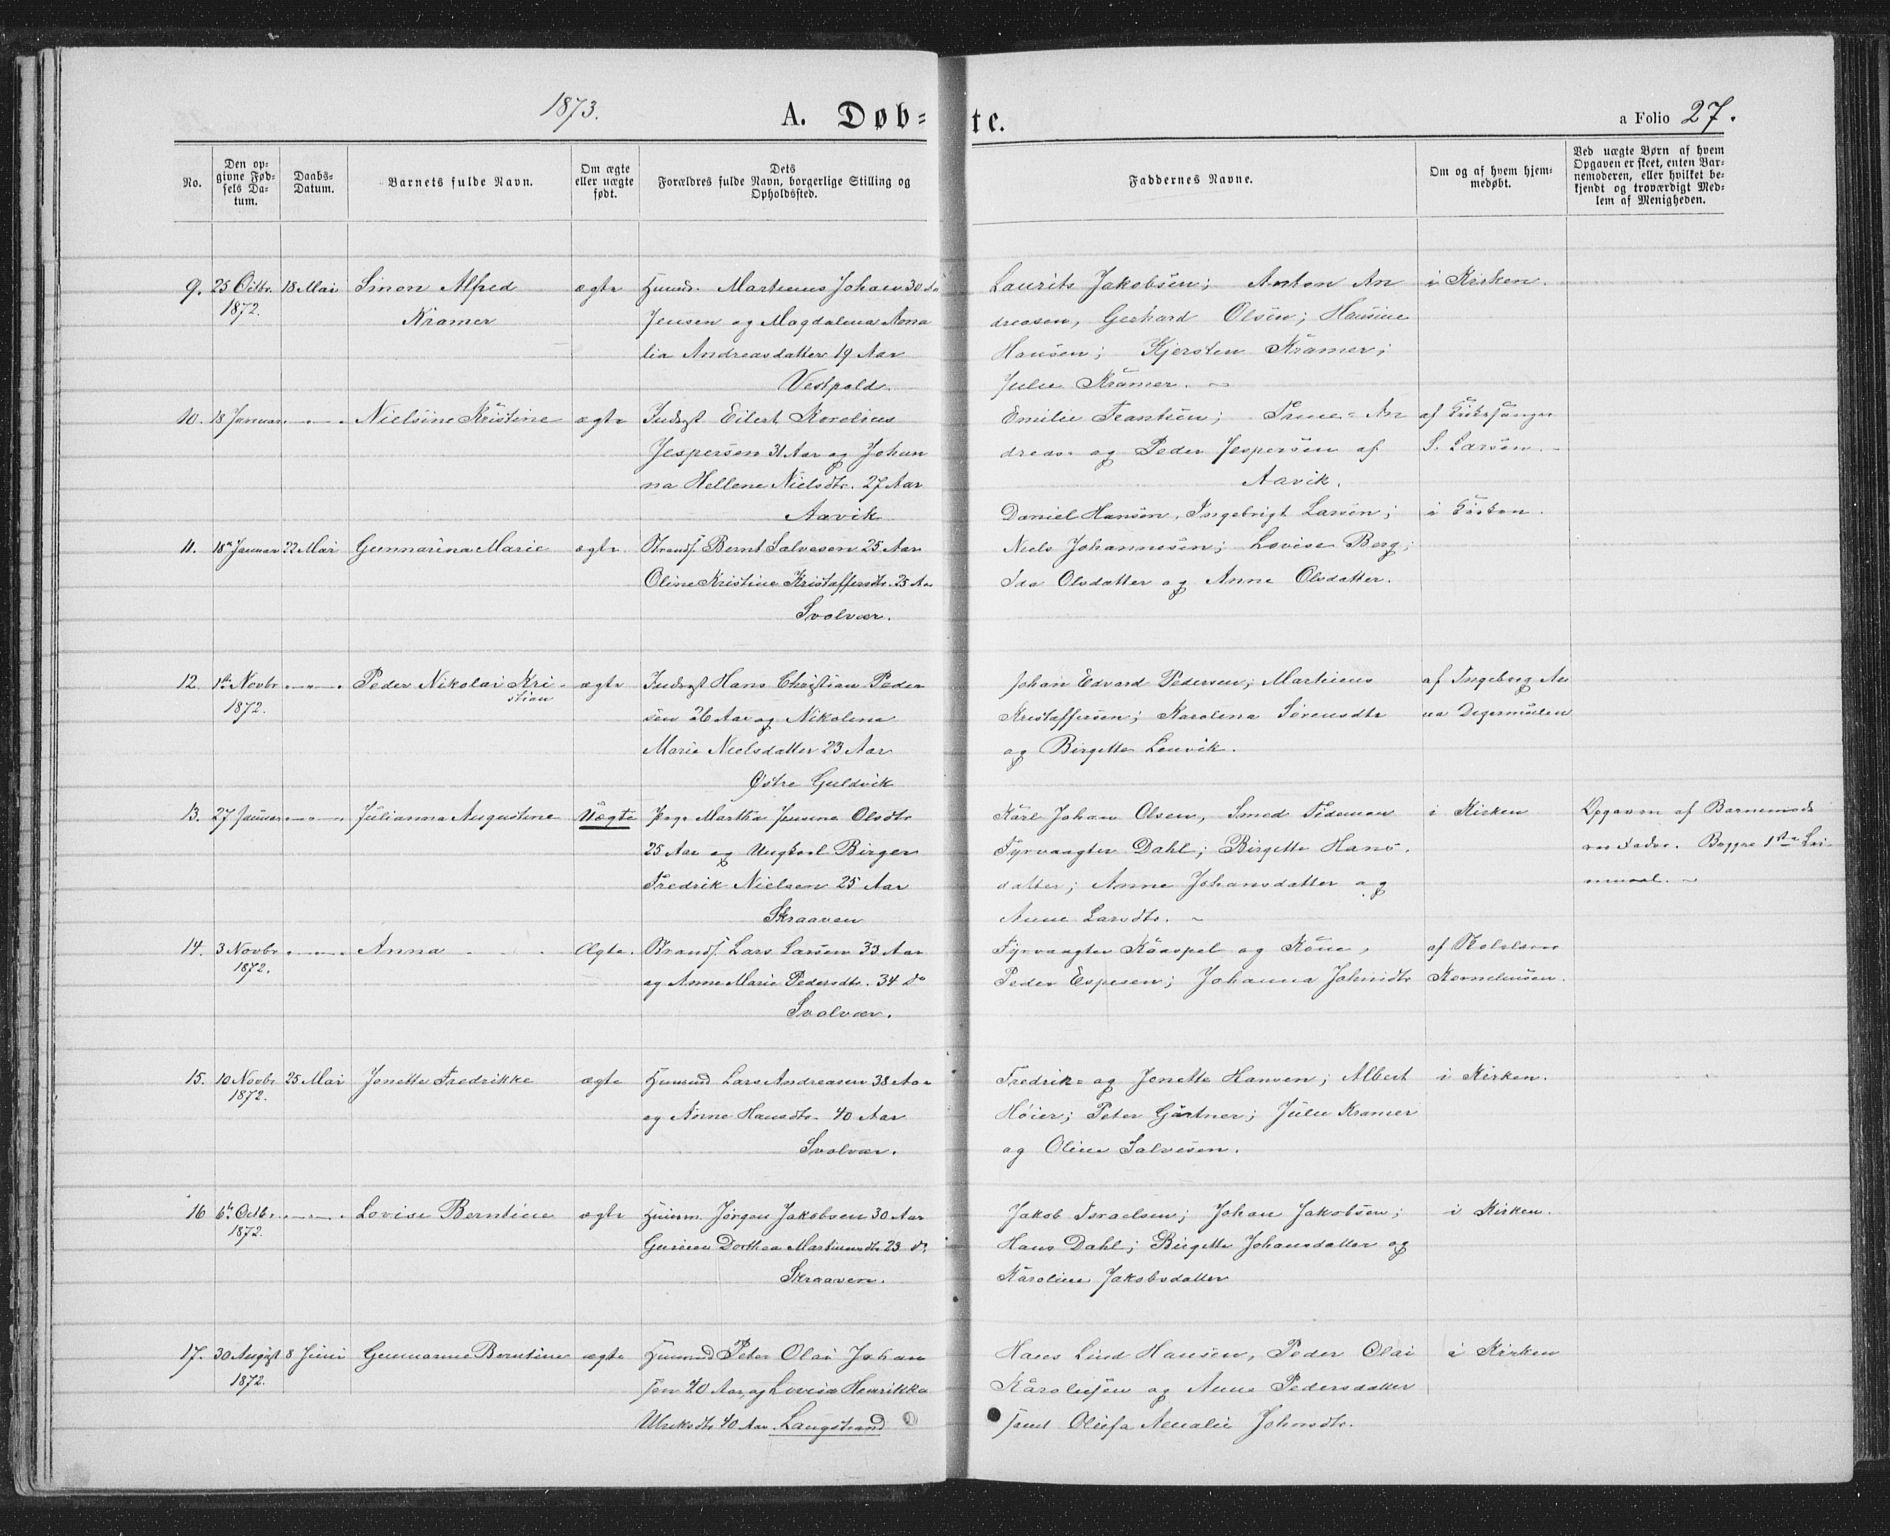 1873.
A. Døb-
te.
a Folio 27.
No.
Den op-
givne Fød-
sels Da-
tum.
Daabs-
Datum.
Barnets fulde Navn.
Om ægte
eller uægte
født.
Dets
Forældres fulde Navn, borgerlige Stilling og
Opholdssted.
Faddernes Navne.
Om og af hvem hjem-
medøbt.
Ved uægte Børn af hvem
Opgaven er skeet, enten Bar-
nemoderen, eller hvilket be-
kjendt og troværdigt Med-
lem af Menigheden.
9. 25 Octbr. 18 Mai Simon Alfred ægte Martinus Johan 30 Aa Laurits Jakobsen; Anton An i Kirken.
1872. Kramer Jensen og Magdalena Ama dreasen, Gerhard Olsen; Hansine
lia Andreasdatter 19 Aar Hansen; Kjersten Kramer;
Vestpold. Julie Kramer.
10. 18 Januar Nielsine Kristine ægte Indrgt Eilert Korelius Emilie Frantsen; An af
Jespersen 31 Aar og Johan dreas og Peder Jespersen af S. Larsen.
na Hellene Nielsdtr. 27 Aar Aavik.
Aavik Daniel Hansen, Ingebrigt Larsen; i Kirken.
11. 18 Januar 22 Mai Gunnarina Marie ægte. Strands. Bernt Salvesen 25 Aar Niels Johannesen; Lovise Berg;
Oline Kristine Kristaffersdtr. 25 Aa Ida Olsdatter og Anne Olsdatter.
Svolvær.
12. 1ste Novbr Peder Nikolai Kri- ægte Indrgt Hans Christian Peder Johan Edvard Pedersen; Martinus af Ingeborg An
1872. stian sen 26 Aar og Nikolina Kristaffersen; Karolina Sørensdtr na Digermulen
Marie Nielsdatter 23 Aar og Birgitte Lenvik.
Østre Guldvik
13. 27 Januar Julianna Augustine Uægte Pige Martha Jensine Olsdtr Karl Johan Olsen, Smed Tideman i Kirken Opgaven af Barnemod
25 Aar og Ungkarl Birger Fyrvaagter Dahl; Birgitte Hans Begges 1ste Lei
Fredrik Nielsen 25 Aar datter; Anne Johansdatter og ermaal.
Skraaven Anne Larsdtr.
14. 3 Novbr Anna Ægte. Strands. Lars Larsen 33 Aar Fyrvaagter og Kone, af
1872. og Anne Marie Pedersdtr. 34 do Peder Espesen; Johanna Johnsdtr Korneliussen.
Svolvær.
15. 10 Novbr 25 Mai Jonette Fredrikke ægte Huusmd Lars Andreasen 38 Aar Fredrik og Jonette Hansen; Albert i Kirken.
1872. og Anne Hansdtr. 40 Aar Høier; Peter Gartner; Julie Kramer
Svolvær. og Oline Salvesen.
16 6te Octbr Lovise Berntine ægte Huusm. Jørgen Jakobsen 30 Aar Jakob Israelsen; Johan Jakobsen; i Kirken.
1872. Gurine Dorthea Martinusdtr 23 do Hans Dahl; Birgitte Johansdatter og
Skraaven. Karoline Jakobsdatter
17. 30 August 8 Juni Gunnarine Berntine ægte Huusmd Peter Olai Johan Hans Lind Hansen, Peder Olai i Kirken
1872. sen 40 Aar, og Lovisa Henrikka Karoliusen og Anne Pedersdatter
Ulriksdtr 40 Aar. Langstrand samt Olufa Amalie Johnsdtr.